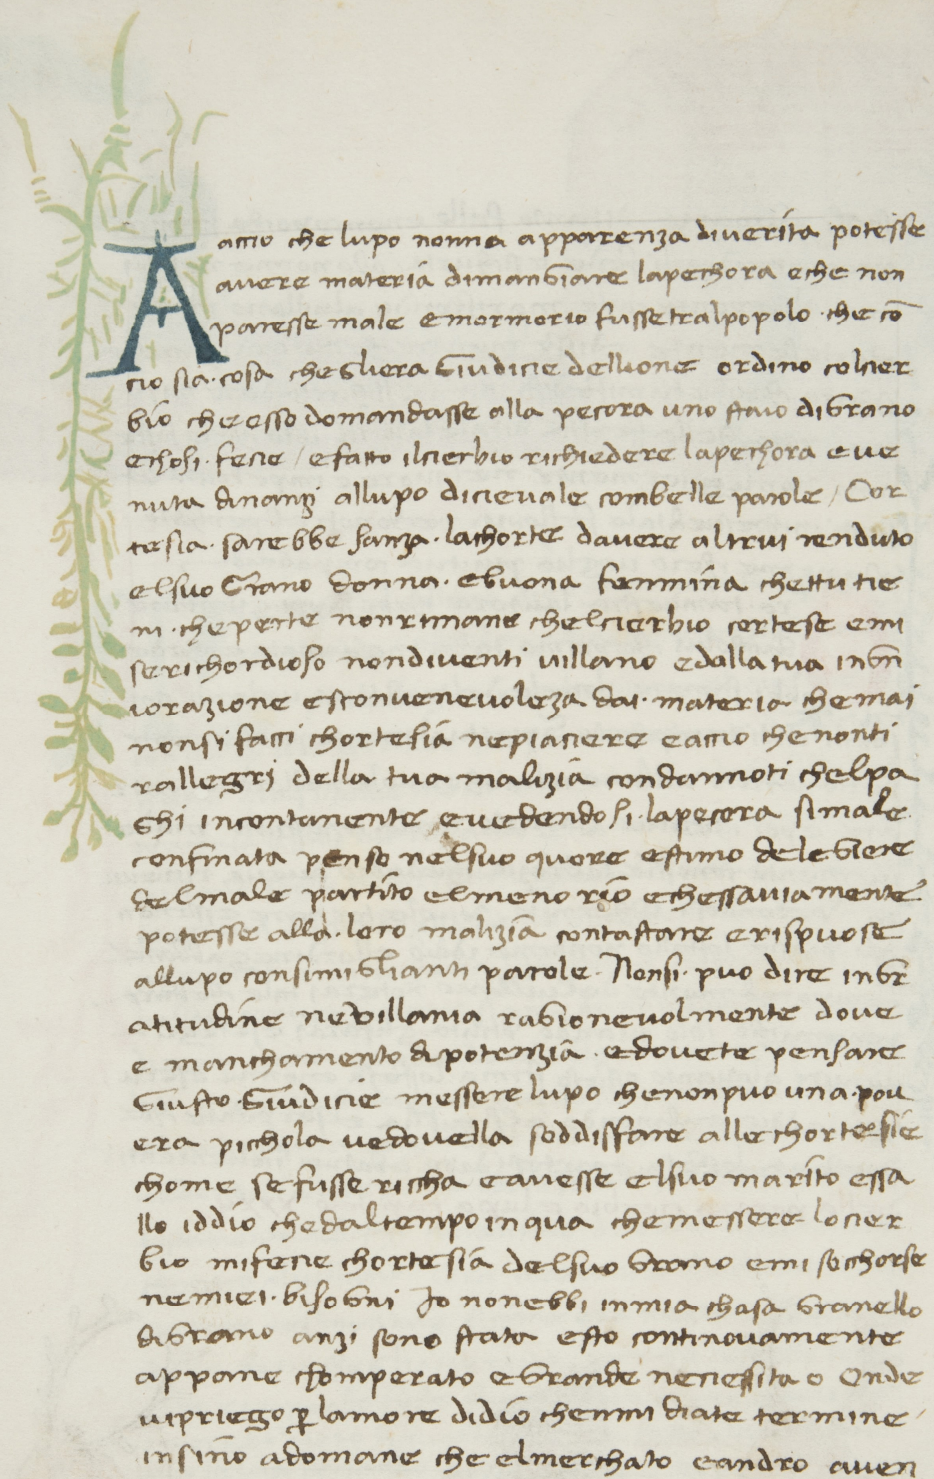 Accio che lupo nonna apparenza diverita potesse
avere materia dimangiare lapechora e che non
paresse male e mormorio fusse tralpopolo · che cō
cio sia · cosa che gliera giudicie dellione ordino colcier
bio che esso domandasse alla pecora uno staio digrano
echosi · fecie / e fatto ilcierbio richiedere lapechora e ve
nuta dinanzi allupo dicievale combelle parole / Cor
tesia · sarebbe sanza · lachorte davere altrui renduto
elsuo Grano donna · e buona femmina chettu tie
ni · che perte nonrimane chelcierbio cortese emi
serichordioso nondiventi villano edallatua ingn
iorazione esconvenevoleza dai · materia che mai
nonsi facci chortesia nepiaciere eaccio chenonti
rallegri della tua malizia condannoti chelpa
ghi incontanente evedendosi · lapecora si male
confinata penso nelsuo quore estimo delegiere
delmale partito elmeno rio echessaviamente
potesse alla · loro malizia contastare erispuose
allupo consimiglianti parole · Nonsi · puo dire ingr
atitudine nevillania ragionevolmente dove
e manchamento dipotenzia · edovete pensare
giusto · giudicie messere lupo chenonpuo una · pov
era pichola vedovella soddisfare allechortesie
chome sefusse riccha eavesse elsuo marito essa
llo iddio chedaltempo inqua chemessere locier
bio mifecie chortesia delsuo grano emi socchorse
nemiei · bisogni Io nonebbi inmia chasa granello
digrano anzi sono stata esto continovamente
appane chomperato egrande neciessita o Onde
vipriego ꝑ lamore didio chemmi diate termine
insino adomane che elmerchato eandro aven